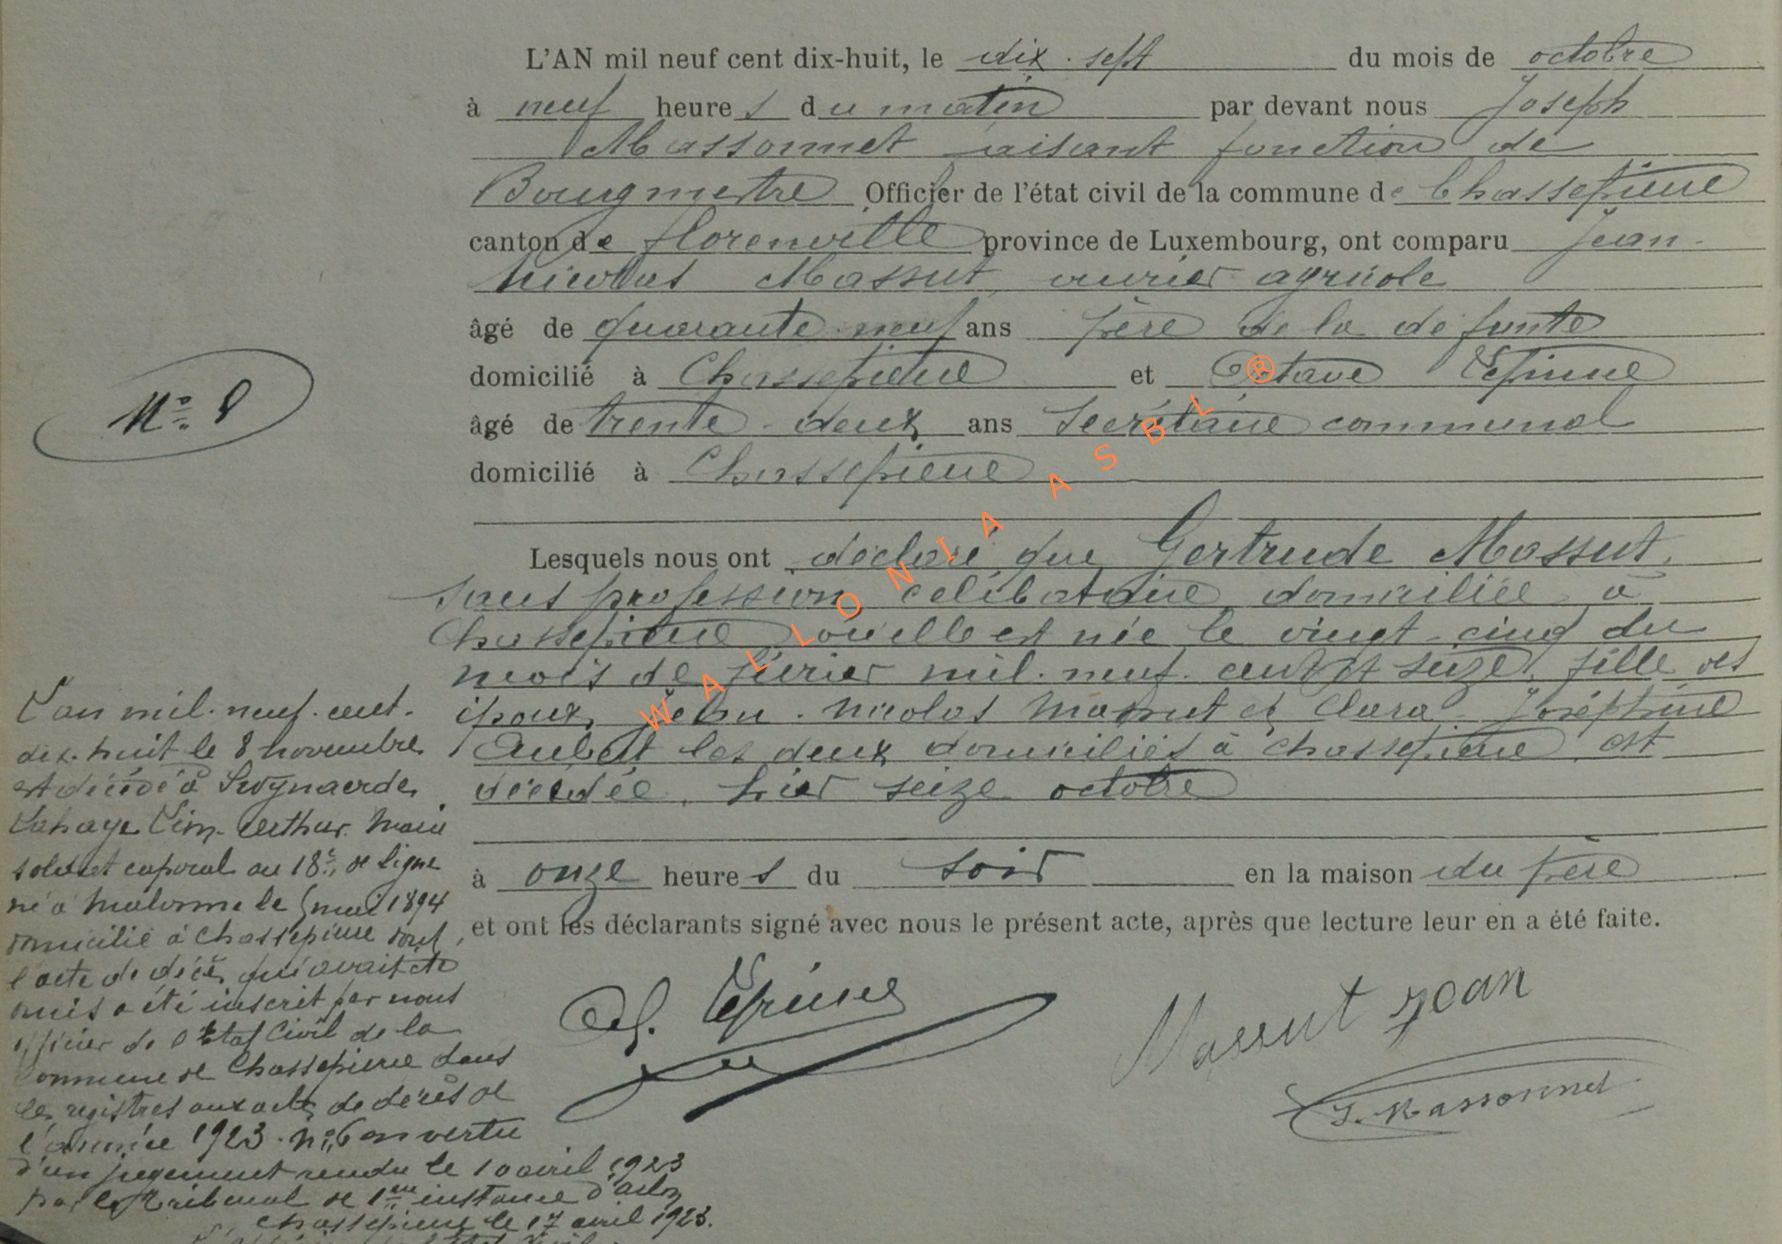 L'AN mil neuf cent dix-huit, le dix-sept du mois de octobre
à neuf heures du matin par devant nous Joseph
Massonnet faisant fonction de
Bourgmestre Officier de l'état civil de la commune de Chassepierre
canton de Florenville province de Luxembourg, ont comparu Jean-
Nicolas Massut, ouvrier agricole
âgé de quarante-neuf ans père de la défunte
domicilié à Chassepierre et Octave Lépinne
âgé de trente-deux ans Secrétaire communal
domicilié à Chassepierre
N° 8
Lesquels nous ont déclaré que Gertrude Massut,
sans profession célibataire domiciliée à
Chassepierre où elle est née le vingt-cinq du
mois de février mil-neuf-cent et seize, fille des
époux Jean-Nicolas Massut et Clara-Joséphine
Aubert les deux domiciliés à Chassepierre est
décédée, hier seize octobre
à onze heures du soir en la maison du père
et ont les déclarants signé avec nous le présent acte, après que lecture leur en a été faite.
Massut Jean
J. Massonnet
L'an mil-neuf-cent-
dix-huit le 8 novembre
est décédé à Swynaerde
Lahaye Arthur Marie
soldat caporal au 18e de ligne
né à le 5 mai 1894
domicilié à Chassepierre dont
l'acte de décès qui avait été
omis a été inscrit par nous
officier de l'Etat Civil de la
Commune de Chassepierre dans
les registres aux actes de décès de
l'année 1923 n° 6 en vertu
d'un jugement rendu le 10 avril 1923
par le Tribunal de 1ere instance d'Arlon
Chassepierre le 17 avril 1923.
WALLONIA ASBL ®